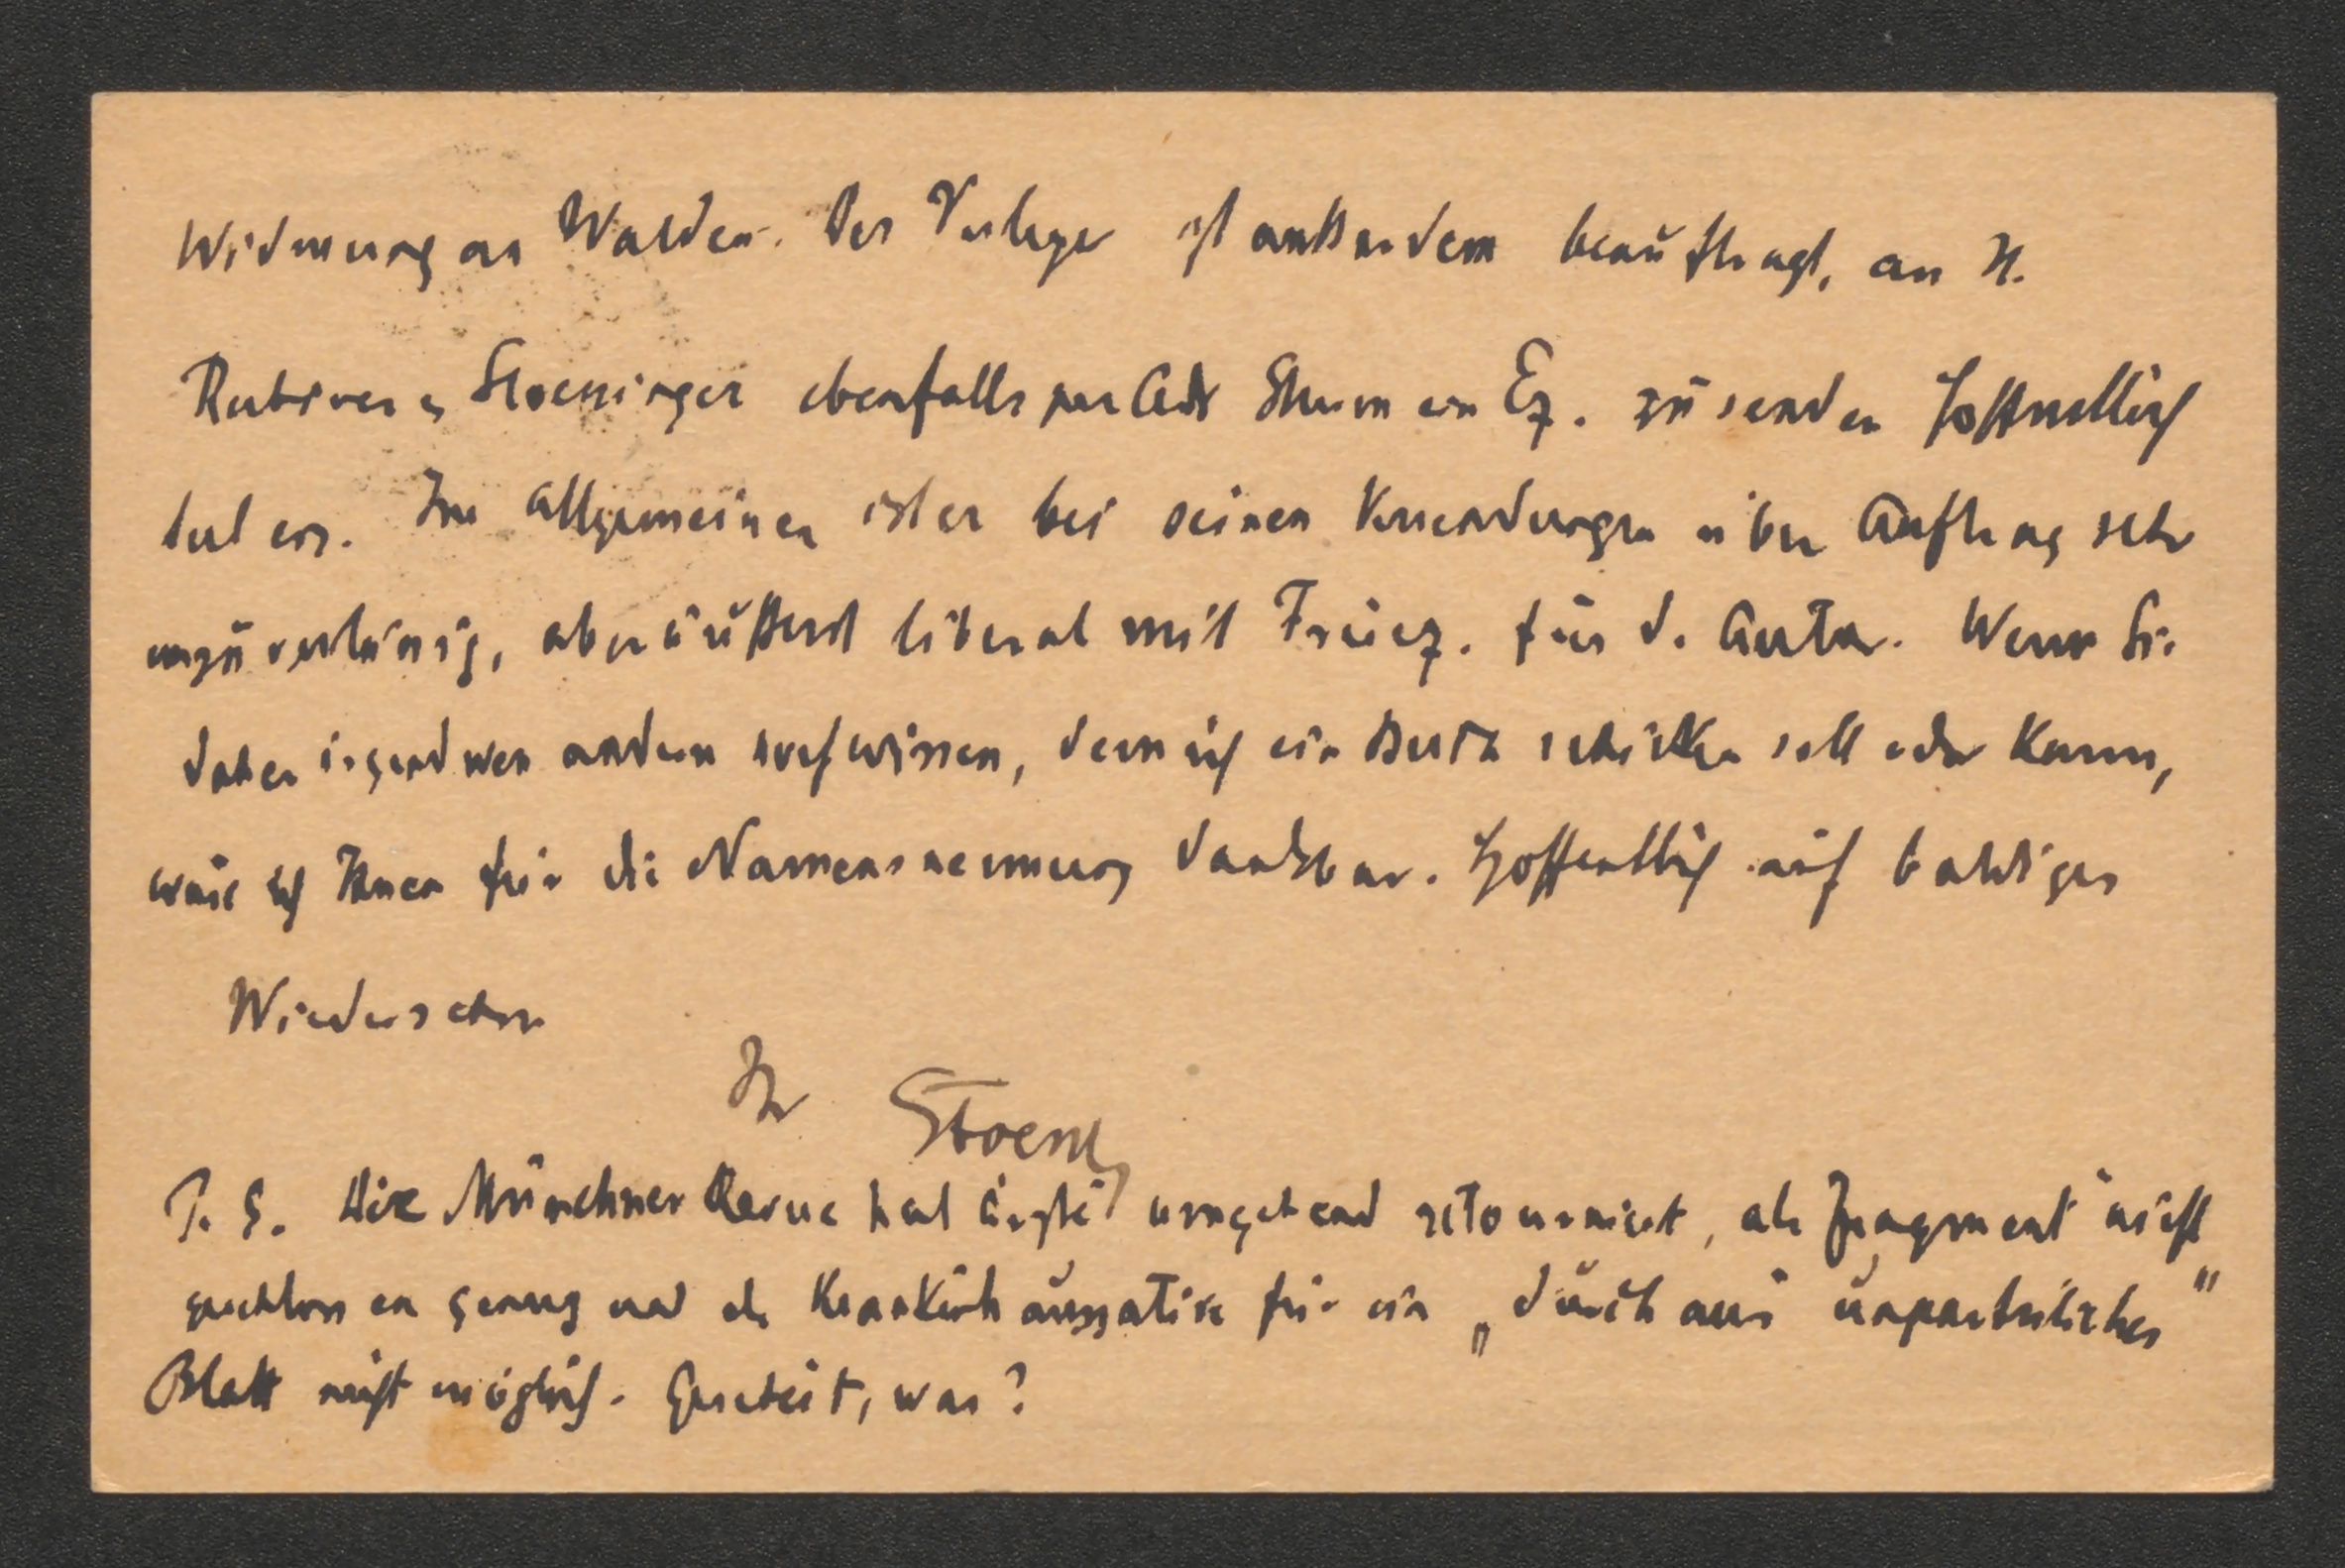 Widmung an Walden. Der Verleger ist außerdem beauftragt, an H.
Rubiner u. Stoessinger ebenfalls per Adr Sturm ein Ex. zu senden hoffentlich
tut ers. Im Allgemeinen ist er bei seinen Versendungen über Auftrag sehr
unzuverlässig, aber äußerst liberal mit Freiex. für d. Autor. Wenn Sie
daher irgend wen andern noch wissen, dem ich ein Buch schicken soll oder kann,
wäre ich Ihnen für die Namensnennung dankbar. Hoffentlich auf baldiges
Wiedersehn
Ihr Stoessl
P. S. Die Münchner Revue hat Ärzte umgehend retourniert, als Fragment nicht
geschlossen genug und als Krankenhaussatire für ein „durchaus unparteiliches"
Blatt nicht möglich. Gescheit, was?